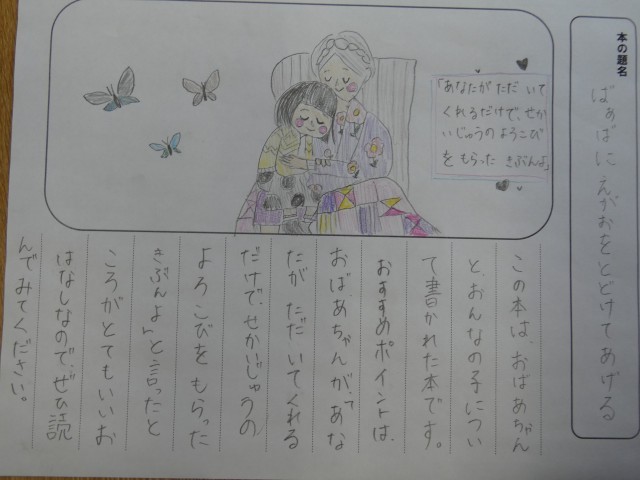 本の題名
ばぁばに えがおをとどけてあげる
「あなたが ただ いて
くれるだけで、せか
いじゅうの ようこび
を もらった きぶんよ」
この本は、おばあちゃん
と、おんなの子につい
て書かれた本です。
おすすめポイントは、
おばあちゃんが「あな
たが ただ いてくれる
だけで、せかいじゅうの
よろこびを もらった
きぶんよ」と言ったと
ころがとてもいいお
はなしなので、ぜひ読
んでみてください。